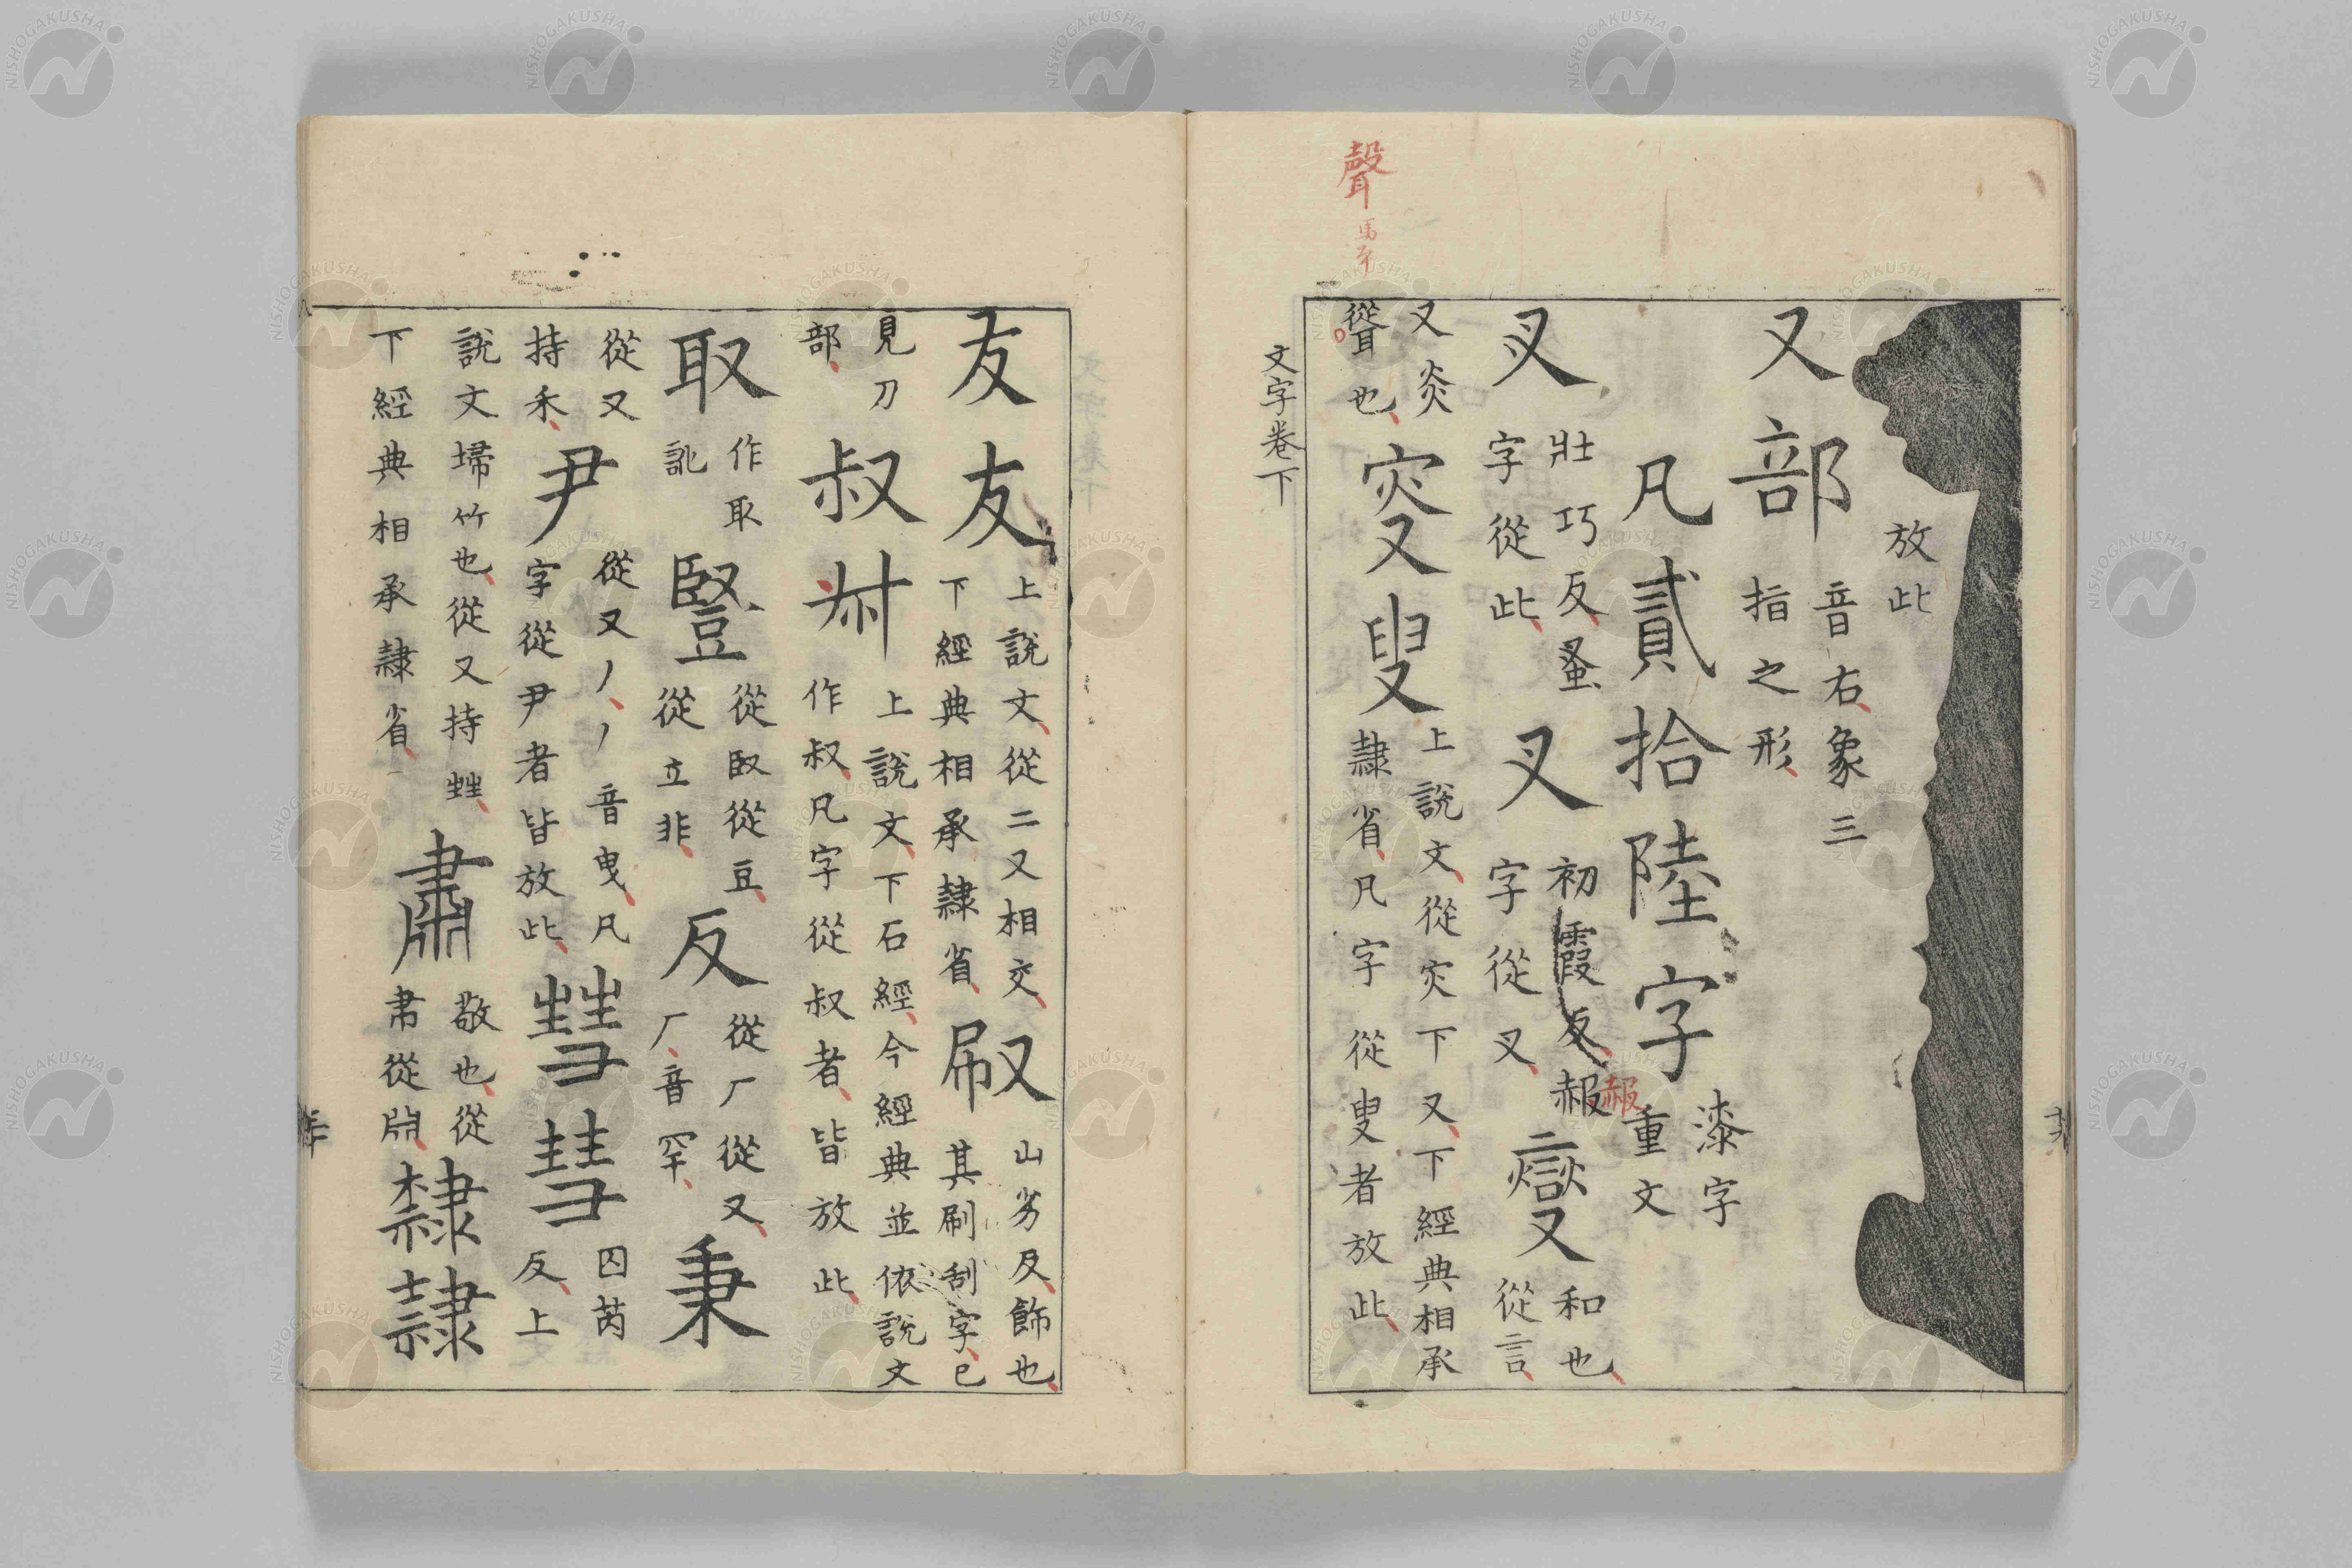 放此
又部 音右象三
指之形
凡貳拾陸字 漆字
重文
叉 壯巧反蚤
字從此
叉 初霞反赧
字從叉
燮 和也
從言
又炎
聲也
聲
叜叟 上說文從灾下又下經典相承
隸省凡字從叟者放此
文字卷下
友友 上說文從二又相交
下經典相承隸省
㕞 山劣反飾也
其刷刮字已
見刀
部
叔 上說文下石經今經典並依說文
作叔凡字從叔者皆放此
取 作取
訛
豎 從臤從豆
從立非
反 從厂從又
厂音罕
秉 從又
持禾
尹 從又丿丿音曳凡
字從尹者皆放此
彗 囚芮
反上
說文埽竹也從又持甡
下經典相承隸省
肅 敬也從
肀從𣶒
隸
NISHOGAKUSHA